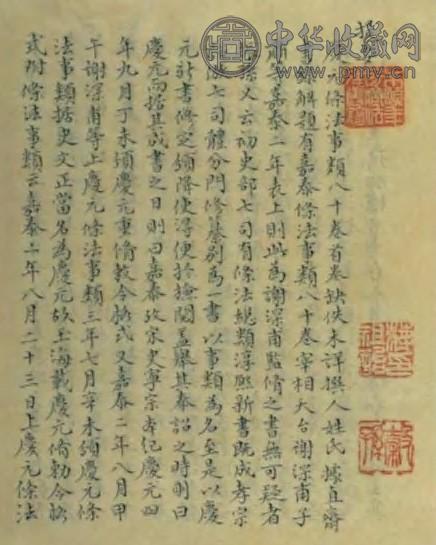 中华收藏网
www.pmv.cn
慶元條法事類八十卷首卷缺佚未詳撰人姓氏據直齋
解題有嘉泰條法事類八十卷宰相天台謝深甫子
等嘉泰二年表上則此為謝深甫監脩之書無可疑者
氏又云初吏部七司有條法總類淳熙新書既成孝宗
七司體分門修纂別為一書以事類為名至是以慶
元新書修定頒降使得便於撿閱蓋舉其奉詔之時則曰
慶元而据其成書之日則曰嘉泰攷宋史寧宗本紀慶元四
年九月丁未頒慶元重脩敕令格式又嘉泰二年八月甲
午謝深甫等上慶元條法事類三年七月辛未頒慶元條
法事類据史文正當名為慶元故玉海載慶元脩勅令格
式附條法事類云嘉泰二年八月二十三日上慶元條法